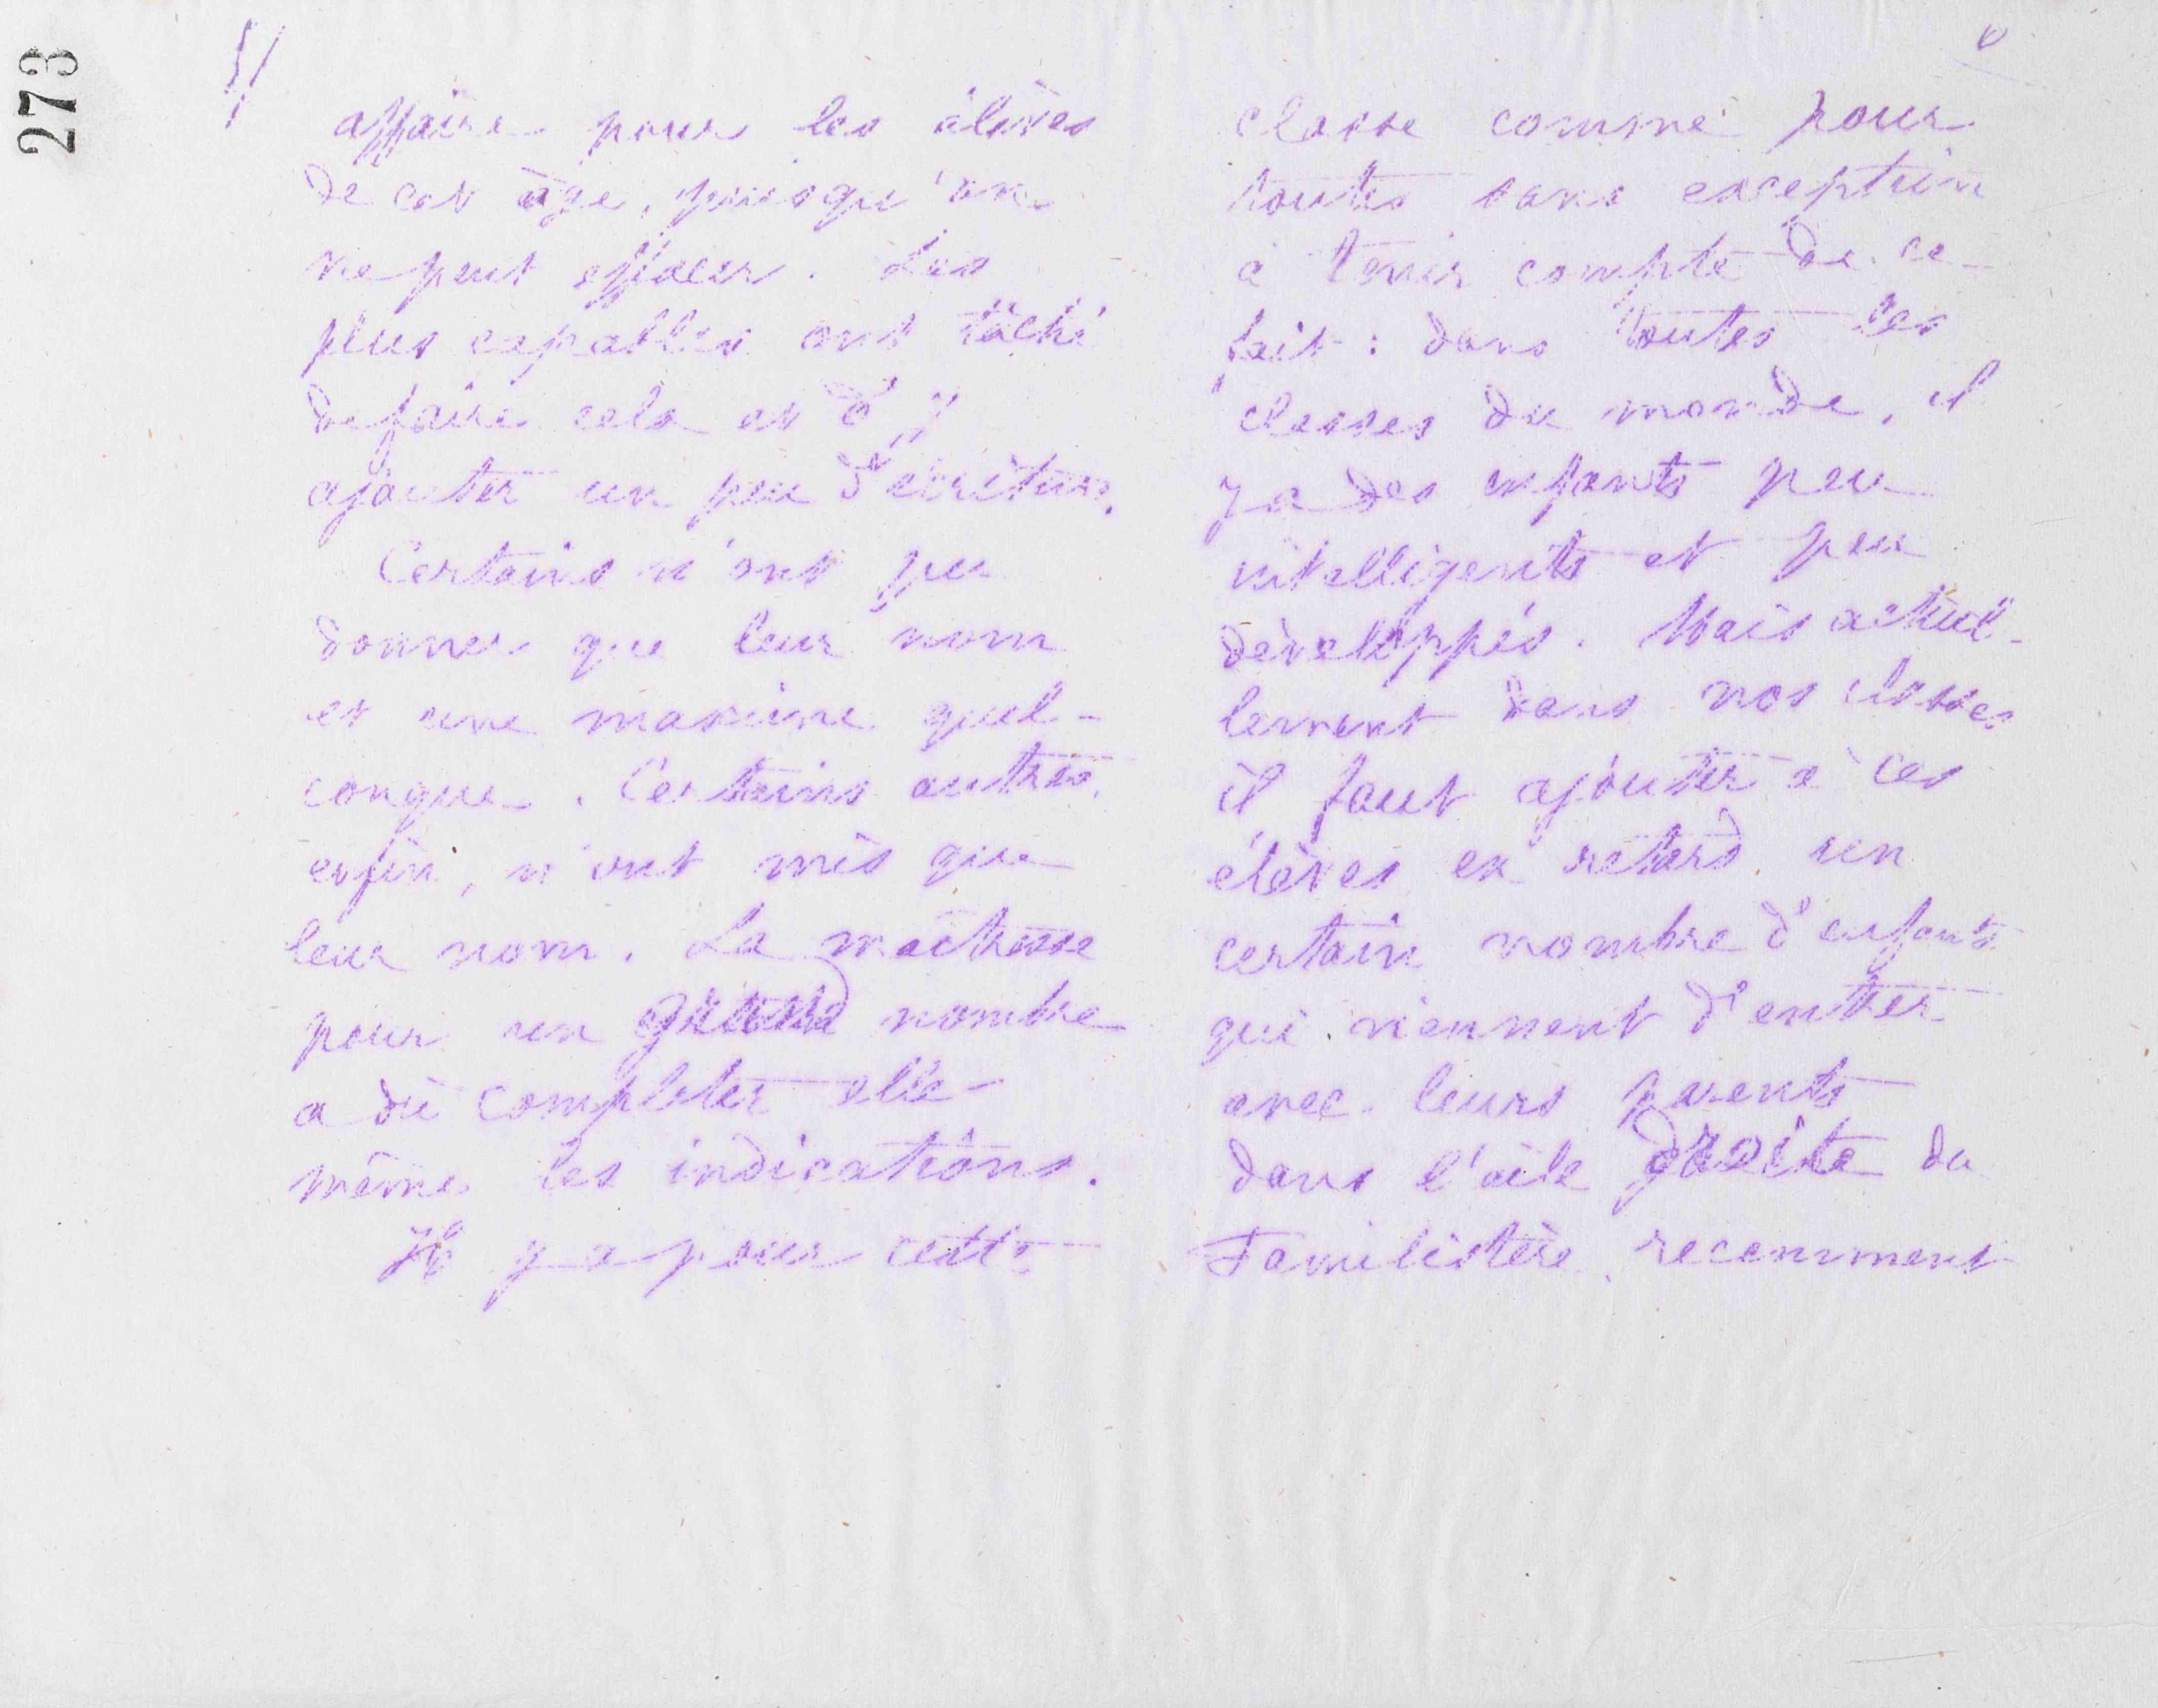 273
affaire pour les élèves
de cet âge, puisqu'on
ne peut effacer. Les
plus capables ont tâché
de faire cela et d'y
ajouter un peu d'écriture.
Certains n'ont pu
donner que leur nom
et une maxime quel-
conque. Certains autres,
enfin, n'ont mis que
leur nom. La maîtresse
pour un grand nombre
a dû compléter elle-
même les indications.
Il y a pour cette
classe comme pour
toutes sans exception
à tenir compte de ce
fait : dans toutes les
classes du monde, il
y a des enfants peu
intelligents et peu
développés. Mais actuel-
lement dans nos classes
il faut ajouter à ces
élèves en retard un
certain nombre d'enfants
qui viennent d'entrer
avec leurs parents
dans l'aile droite du
Familistère, recemment